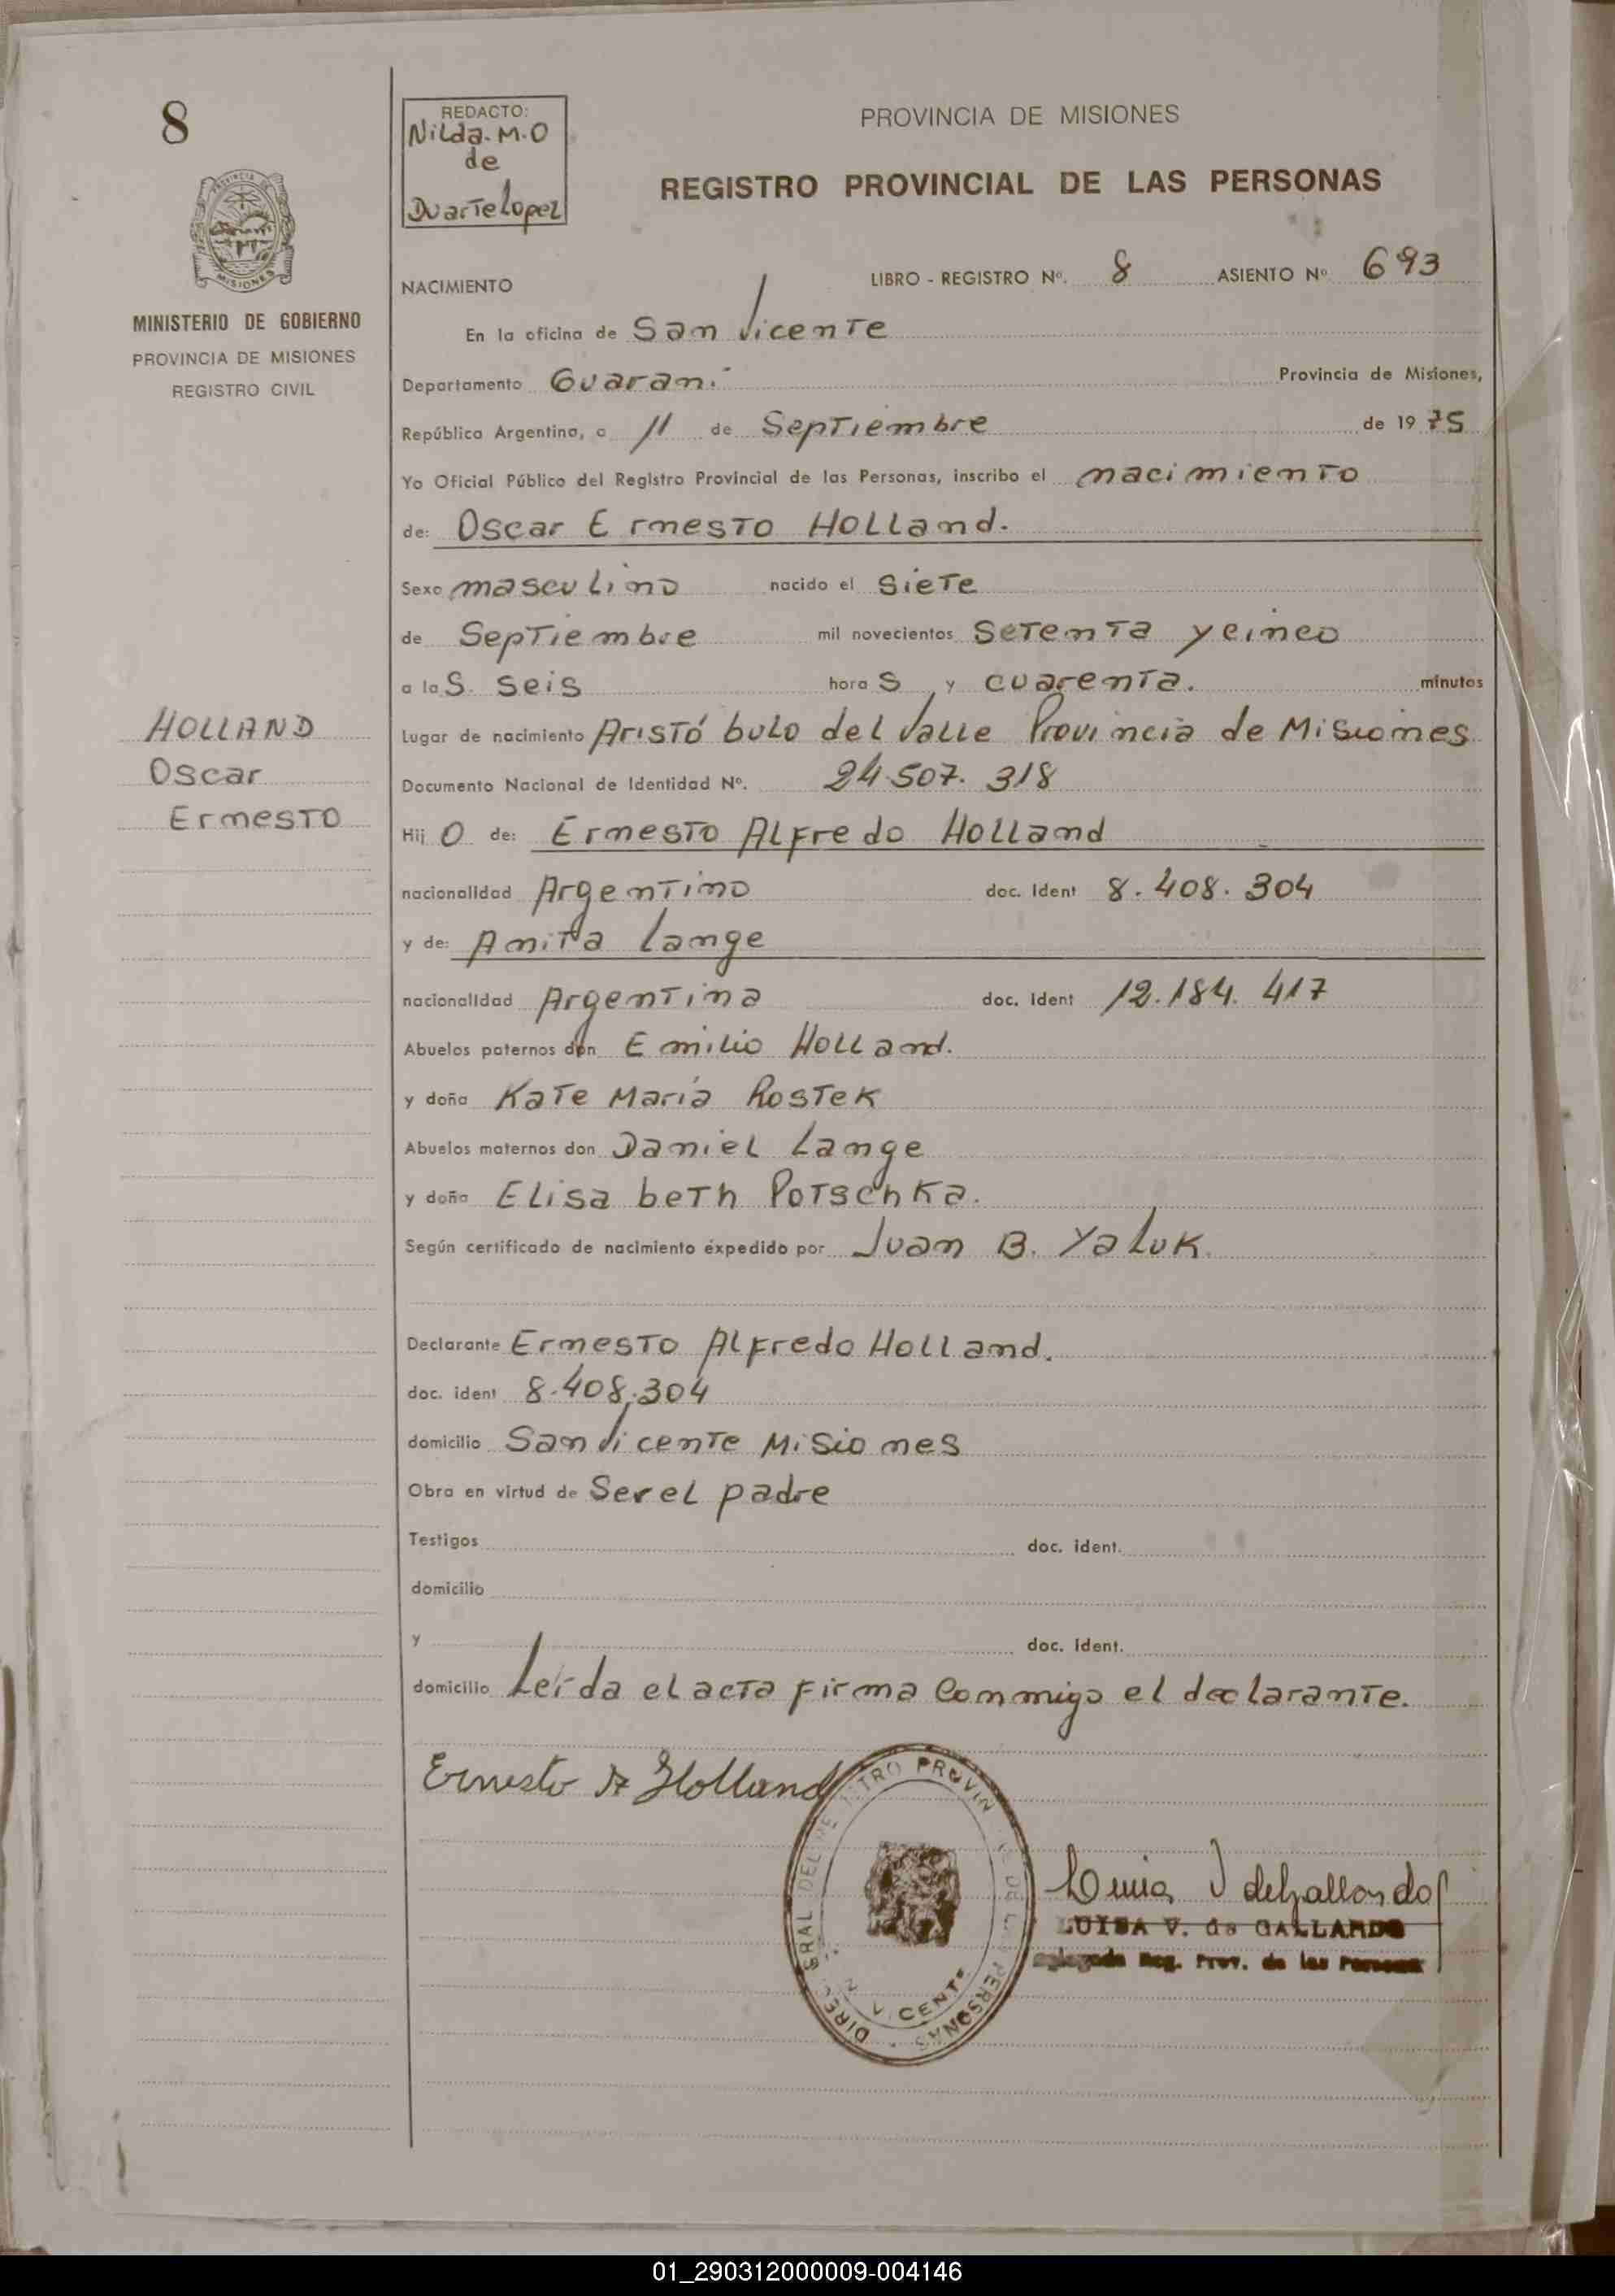 8
PROVINCIA DE
MISIONES
MINISTERIO DE GOBIERNO
PROVINCIA DE MISIONES
REGISTRO CIVIL
HOLLAND
Oscar
Ernesto
REDACTO:
Nilda. M. O
de
Duarte Lopez
PROVINCIA DE MISIONES
REGISTRO PROVINCIAL DE LAS PERSONAS
NACIMIENTO LIBRO - REGISTRO Nº. 8 ASIENTO Nº 693
En la oficina de San Vicente
Departamento Guaraní Provincia de Misiones,
República Argentina, a 11 de Septiembre de 1975
Yo Oficial Público del Registro Provincial de las Personas, inscribo el nacimiento
de: Oscar Ernesto Holland.
Sexo masculino nacido el Siete
de Septiembre mil novecientos Setenta y cinco
a las Seis horas y cuarenta. minutos
Lugar de nacimiento Aristóbulo del Valle Provincia de Misiones
Documento Nacional de Identidad Nº. 24.507.318
Hijo de: Ernesto Alfredo Holland
nacionalidad Argentino doc. Ident 8.408.304
y de: Anita Lange
nacionalidad Argentina doc. Ident 12.184.417
Abuelos paternos don Emilio Holland.
y doña Kate María Rostek
Abuelos maternos don Daniel Lange
y doña Elisabeth Potschka.
Según certificado de nacimiento expedido por Juan B. Yaluk.
Declarante Ernesto Alfredo Holland.
doc. ident 8.408.304
domicilio San Vicente Misiones
Obra en virtud de Ser el padre
Testigos doc. ident.
domicilio
y doc. ident.
domicilio Leída el acta firma conmigo el declarante.
Ernesto A Holland
PROVIN
DE
PERSONAS
LUISA V. de GALLARDO
Reg. Prov. de las
01_290312000009-004146